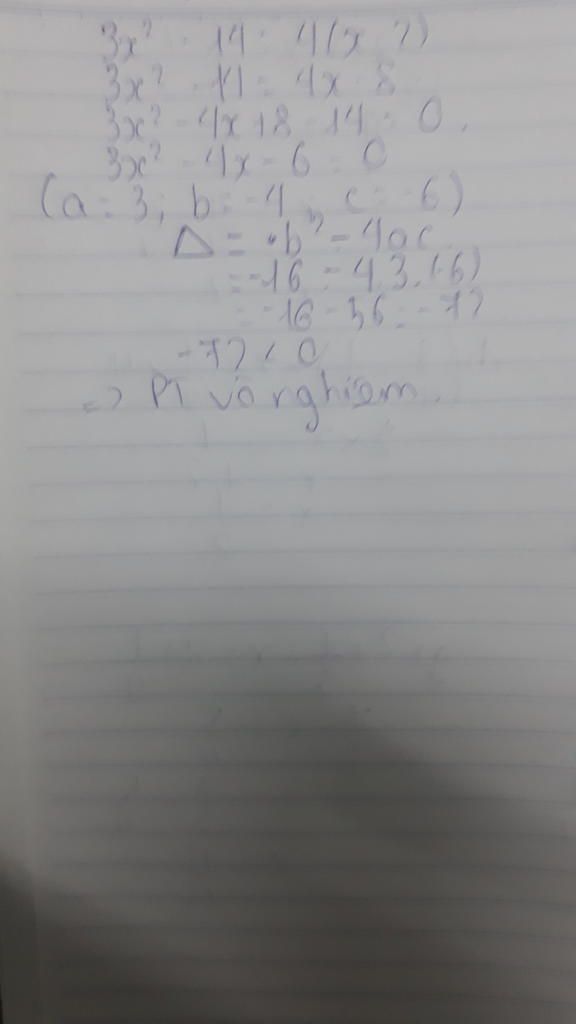 3x² - 14 = 4(x - 2)
3x² - 14 = 4x - 8
3x² - 4x + 8 - 14 = 0.
3x² - 4x - 6 = 0
(a = 3; b = -4; c = -6)
Δ = b² - 4ac
= -16 - 4.3.(-6)
= -16 - 56 = -72
-72 < 0
=> PT vô nghiệm.